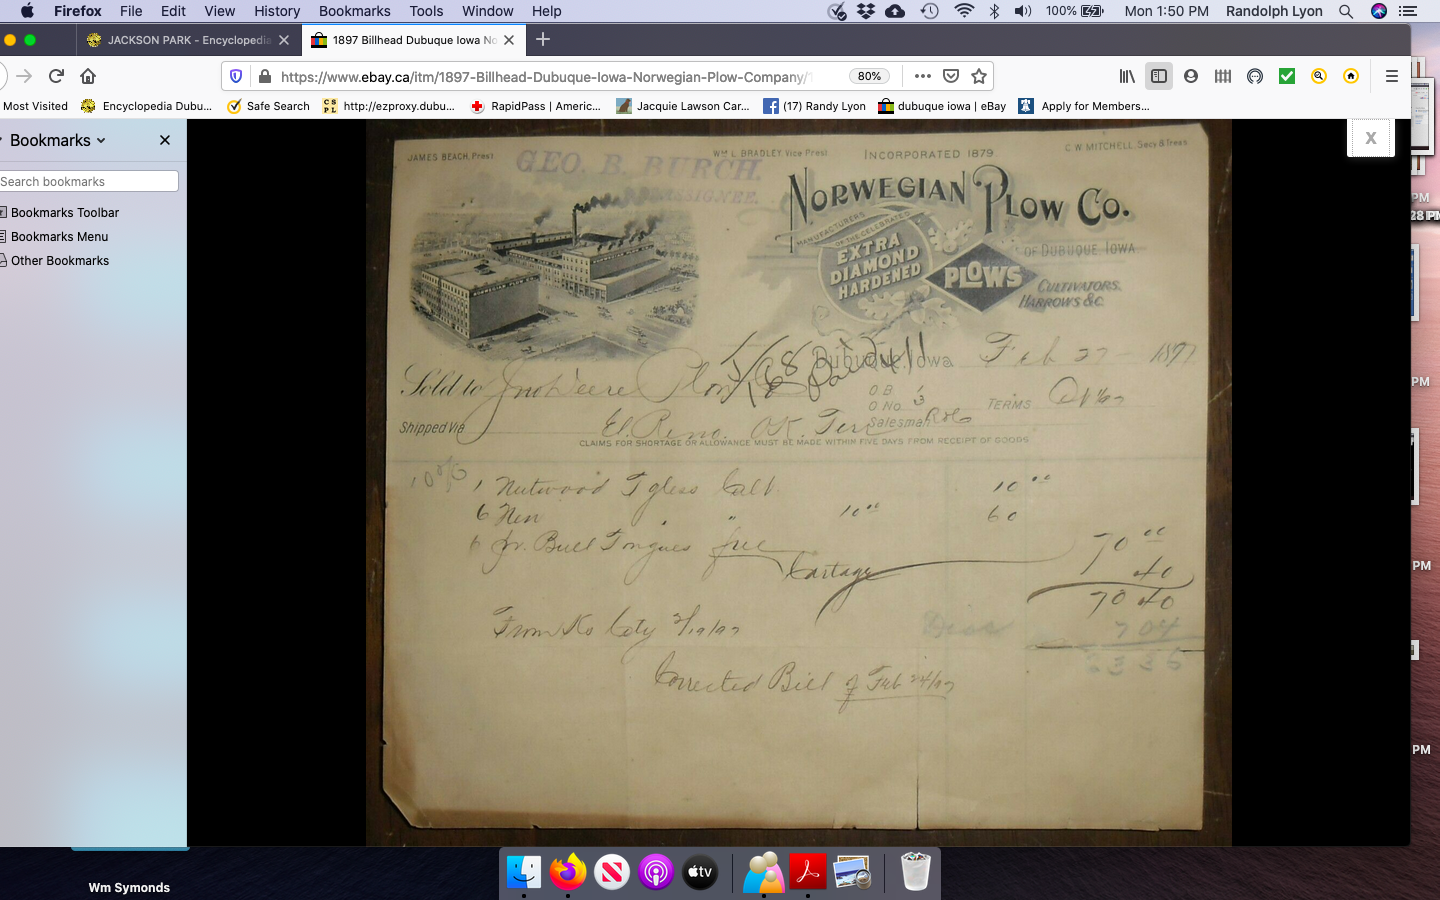 Firefox File Edit View History Bookmarks Tools Window Help 100% Mon 1:50 PM Randolph Lyon
JACKSON PARK - Encyclopedia 1897 Billhead Dubuque Iowa No
https://www.ebay.ca/itm/1897-Billhead-Dubuque-Iowa-Norwegian-Plow-Company/ 80%
Most Visited Encyclopedia Dubu... CS PL Safe Search http://ezproxy.dubu... RapidPass | Americ... Jacquie Lawson Car... (17) Randy Lyon dubuque iowa | eBay Apply for Members...
Bookmarks
Search bookmarks
Bookmarks Toolbar
Bookmarks Menu
Other Bookmarks
X
JAMES BEACH, Prest WM L. BRADLEY, Vice Prest INCORPORATED 1879 C. W. MITCHELL, Secy & Treas
GEO. B. BURCH.
ASSIGNEE.
NORWEGIAN PLOW CO.
MANUFACTURERS
OF THE CELEBRATED
OF DUBUQUE, IOWA
EXTRA
DIAMOND
HARDENED
PLOWS
CULTIVATORS,
HARROWS &C.
Dubuque, Iowa Feb 27 - 1897
Sold to Jno Deere Plow
O B
O No 3 TERMS
Shipped Via El Reno. OK. Terr Salesman
CLAIMS FOR SHORTAGE OR ALLOWANCE MUST BE MADE WITHIN FIVE DAYS FROM RECEIPT OF GOODS
10%
1 Nutwood Tgless Cult 10 00
6 New " " 10 00 60
6 Bull Tongues free 70 00
Cartage 40
70 40
From Ks City 2/19/97 7 04
63 36
Corrected Bill of Feb 24/97
PM
28 PM
PM
PM
PM
Wm Symonds
tv